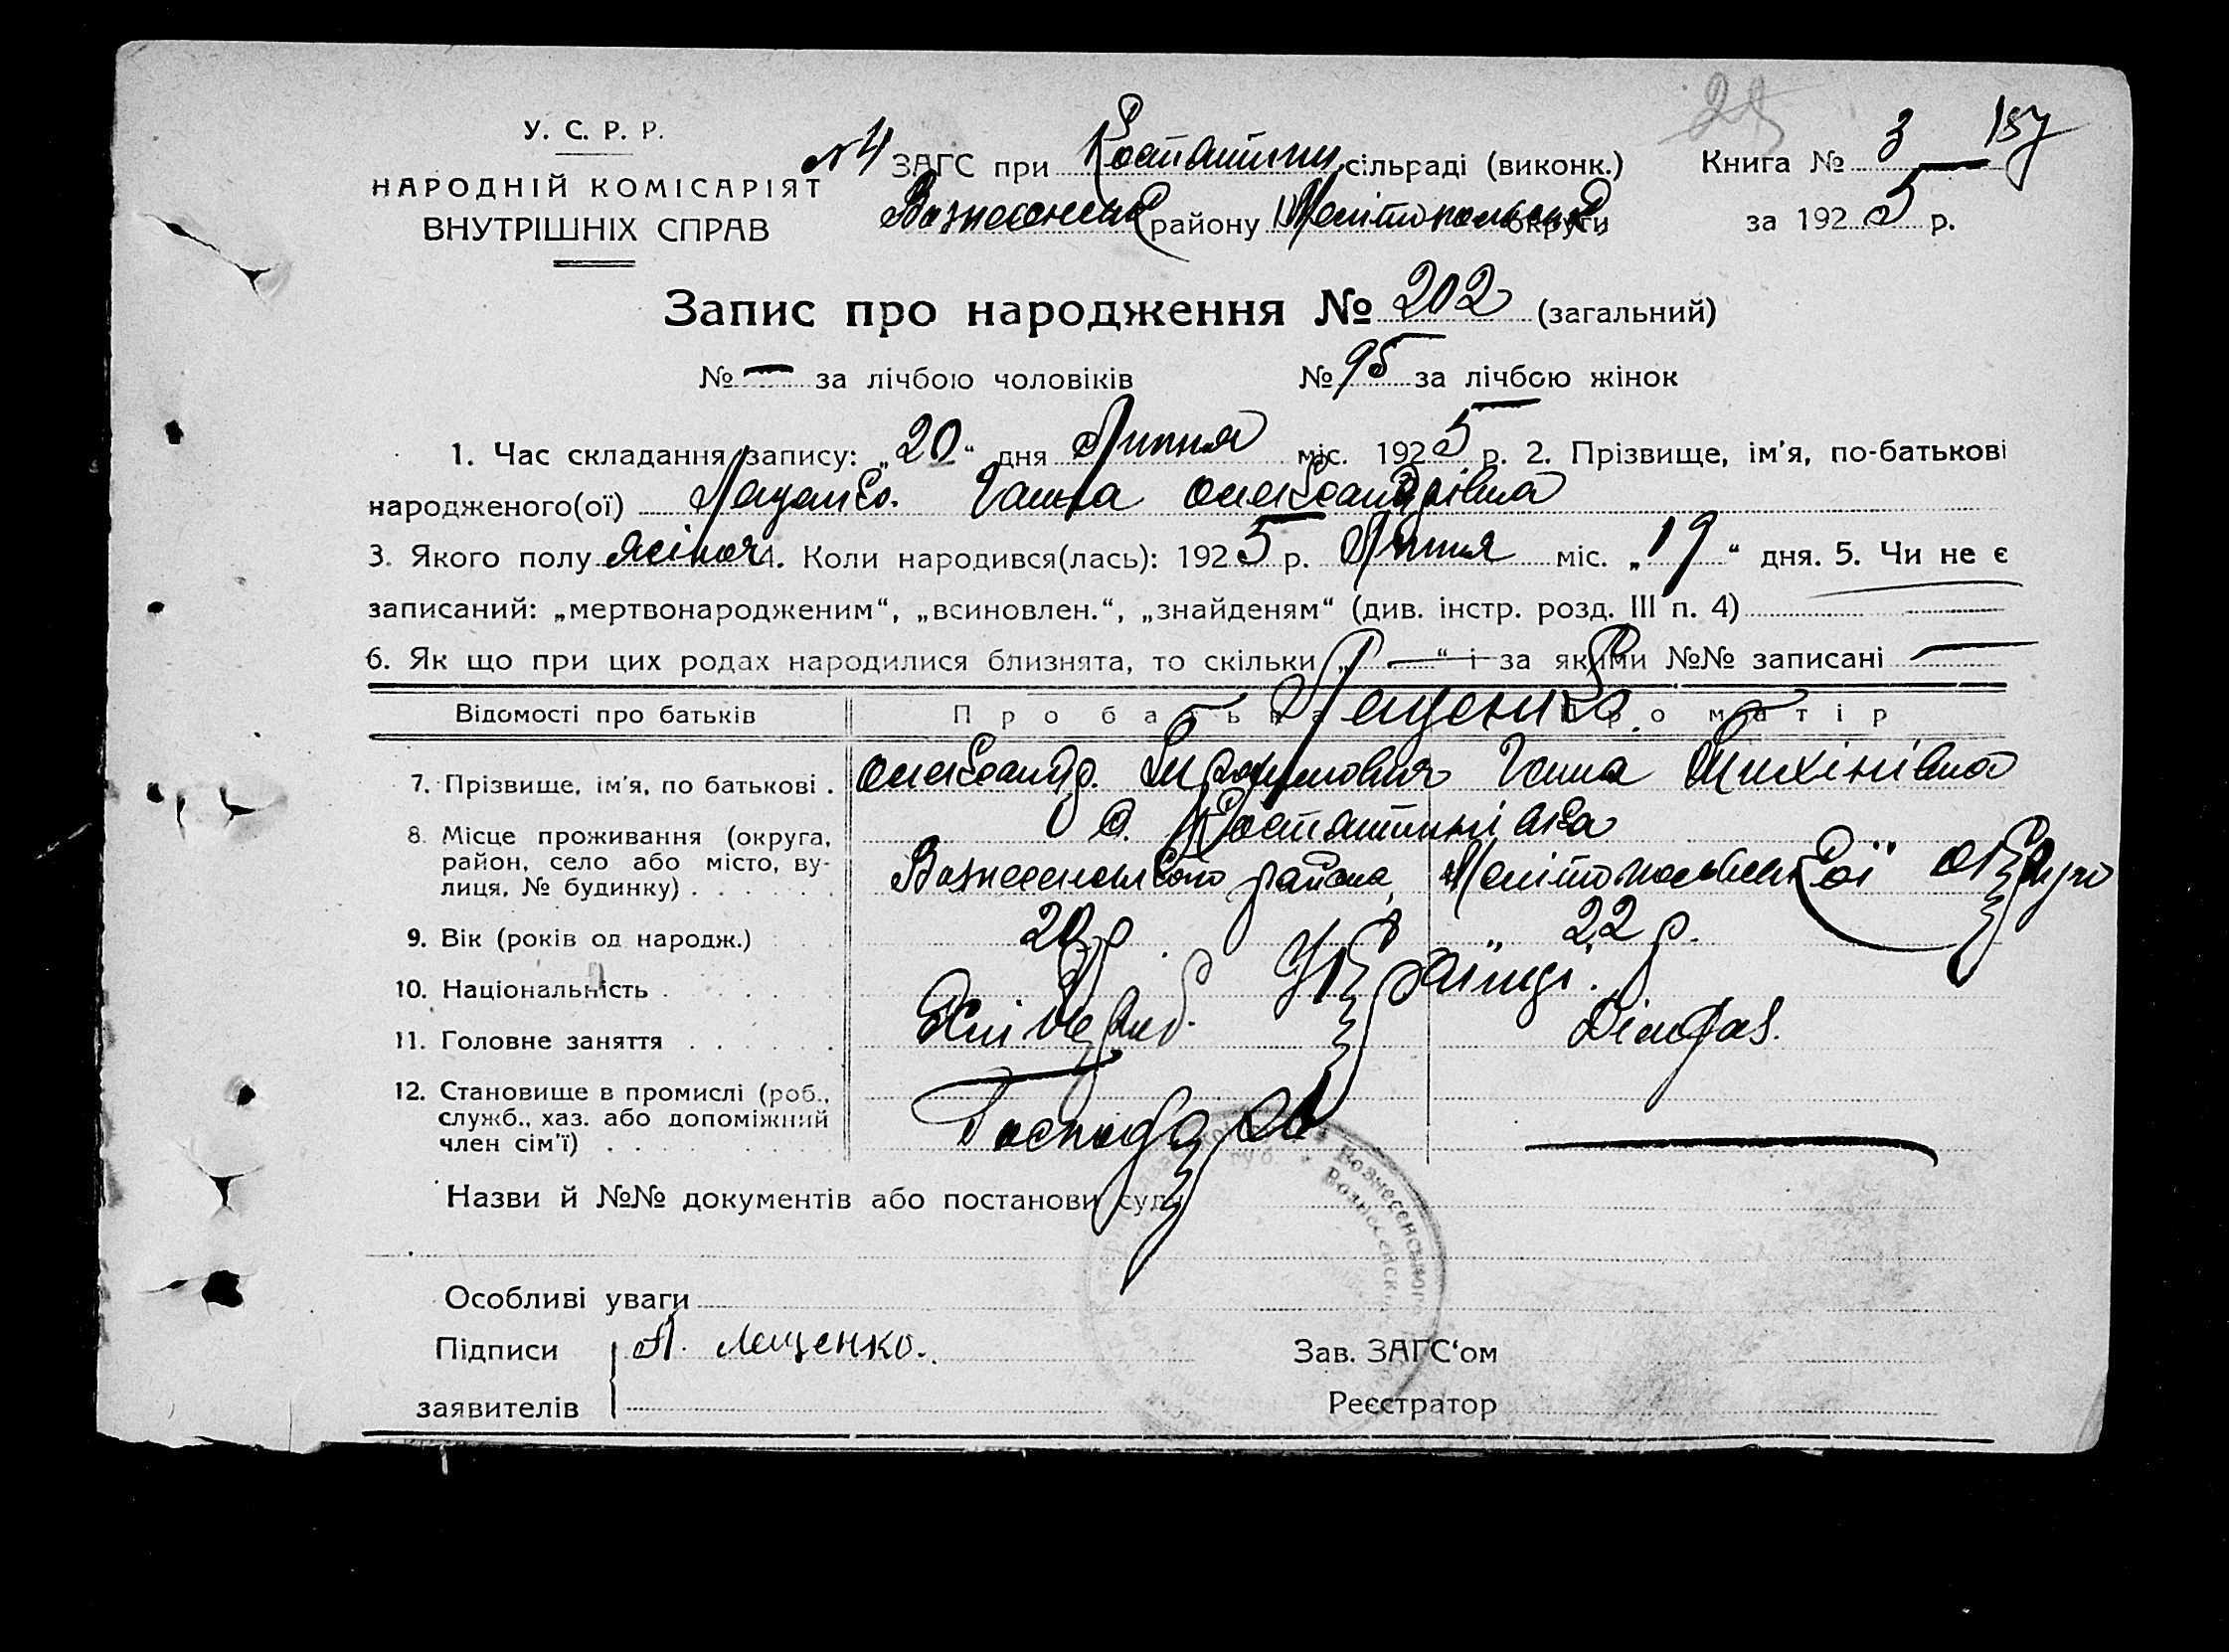 25
У. С. Р. Р.
НАРОДНІЙ КОМІСАРІЯТ
ВНУТРІШНІХ СПРАВ
№4 ЗАГС при Костатин. сільраді (виконк.)
Книга № 3 157
Вознесенськ району Мелітопольськ округи
за 1925 р.
Запис про народження № 202 (загальний)
№ — за лічбою чоловіків № 95 за лічбою жінок
1. Час складання запису: „20“ дня Липня міс. 1925 р. 2. Прізвище, ім'я, по-батькові
народженого(ої) Лещенко. Ганна Олександрівна
3. Якого полу жіноч 4. Коли народився(лась): 1925 р. Липня міс. „19“ дня. 5. Чи не є
записаний: „мертвонародженим“, „всиновлен.“, „знайденям“ (див. інстр. розд. III п. 4)
6. Як що при цих родах народилися близнята, то скільки „—“ і за якими №№ записані —
Відомості про батьків Про батька Про матір
Лещенко.
7. Прізвище, ім'я, по батькові . Олександ. Трохимович Ганна Тихінівна
8. Місце проживання (округа, район, село або місто, вулиця, № будинку) . . . . . .
с. Костатинівка
Вознесенського района, Мелітопольської округи
9. Вік (років од народж.) 20 р. „ 22 р.
10. Національність . Українці.
11. Головне заняття . . . . . . Хліборуб. Домгос.
12. Становище в промислі (роб., служб., хаз. або допоміжний член сім'ї) . Господар —
Назви й №№ документів або постанови суду
Особливі уваги
Підписи заявителів А. Лещенко.
Зав. ЗАГС'ом
Реєстратор